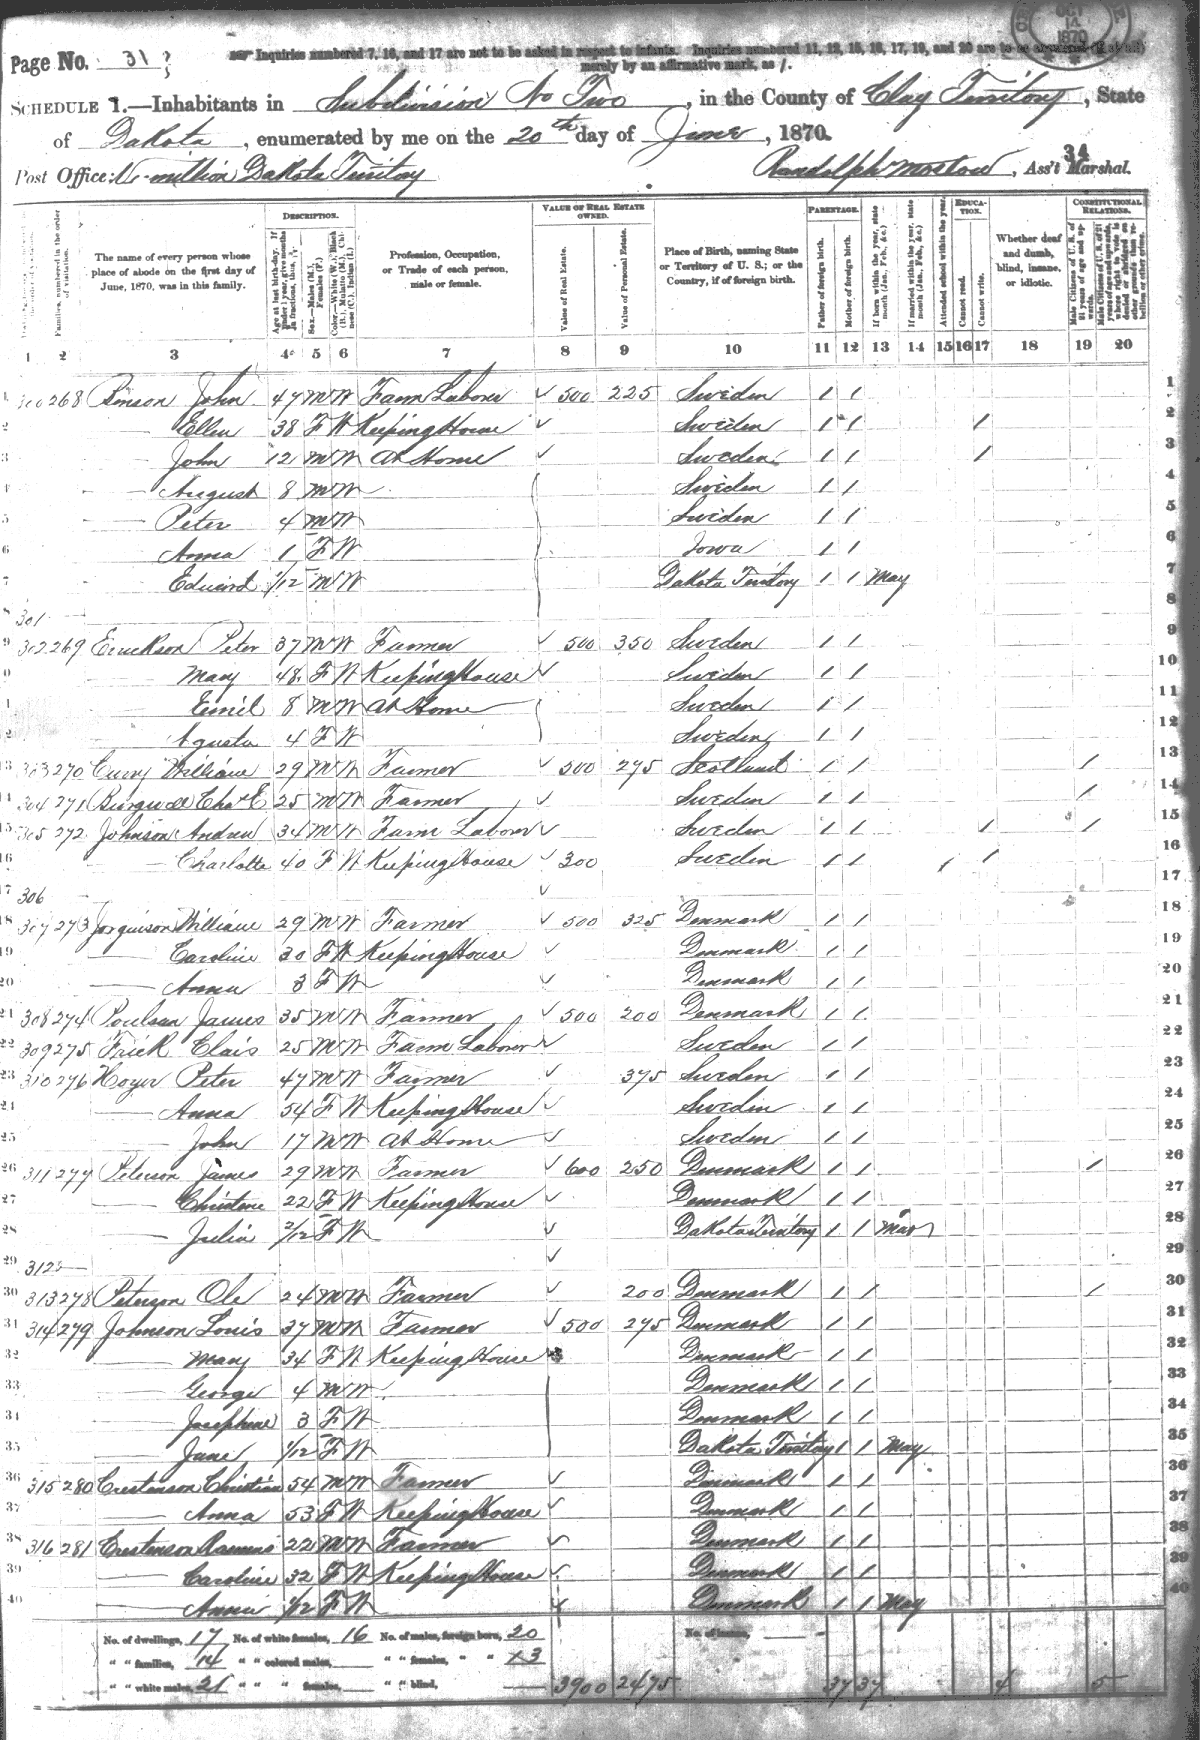 Page No. 31
Inquiries numbered 7, 16, and 17 are not to be asked in respect to infants. Inquiries numbered 11, 12, 15, 16, 17, 19, and 20 are to be answered (if at all)
merely by an affirmative mark, as /.
OCT 14 1870
SCHEDULE 1.—Inhabitants in Subdivision No Two, in the County of Clay Territory, State
of Dakota, enumerated by me on the 20th day of June, 1870.
34
Post Office: Dakota Territory Randolph , Ass't Marshal.
DESCRIPTION. VALUE OF REAL ESTATE OWNED. PARENTAGE. EDUCATION. CONSTITUTIONAL RELATIONS.
Families, numbered in the order of visitation.
The name of every person whose place of abode on the first day of June, 1870, was in this family.
Age at last birth-day. If under 1 year, give months in fractions, thus, 3/12
Sex.—Males (M.), Females (F.)
Color.—White (W.), Black (B.), Mulatto (M.), Chinese (C.), Indian (I.)
Profession, Occupation, or Trade of each person, male or female.
Value of Real Estate.
Value of Personal Estate.
Place of Birth, naming State or Territory of U. S.; or the Country, if of foreign birth.
Father of foreign birth.
Mother of foreign birth.
If born within the year, state month (Jan., Feb., &c.)
If married within the year, state month (Jan., Feb., &c.)
Attended school within the year.
Cannot read.
Cannot write.
Whether deaf and dumb, blind, insane, or idiotic.
Male Citizens of U. S. of 21 years of age and upwards.
Male Citizens of U. S. of 21 years of age and upwards, whose right to vote is denied or abridged on other grounds than rebellion or other crime.
1 2 3 4 5 6 7 8 9 10 11 12 13 14 15 16 17 18 19 20
1 300 268 John 47 M W Farm Laborer ✓ 500 225 Sweden / / 1
2 — Ellen 38 F W Keeping House ✓ Sweden / / / 2
3 — John 12 M W At Home ✓ Sweden / / / 3
4 — August 8 M W Sweden / / 4
5 — Peter 4 M W Sweden / / 5
6 — Anna 1 F W Iowa / / 6
7 — Edward 1/12 M W Dakota Territory / / May 7
8 301 — 8
9 302 269 Erickson Peter 37 M W Farmer ✓ 500 350 Sweden / / 9
10 — Mary 48 F W Keeping House ✓ Sweden / / 10
11 — Emil 8 M W At Home Sweden / / 11
12 — Agusta 4 F W Sweden / / 12
13 303 270 Curry William 29 M W Farmer ✓ 500 275 Scotland / / / 13
14 304 271 Chas E 25 M W Farmer ✓ Sweden / / / 14
15 305 272 Johnson Andrew 34 M W Farm Laborer ✓ Sweden / / / / 15
16 — Charlotte 40 F W Keeping House ✓ 300 Sweden / / / / 16
17 306 — ✓ 17
18 307 273 Jorguison William 29 M W Farmer ✓ 500 325 Denmark / / 18
19 — Caroline 30 F W Keeping House ✓ Denmark / / 19
20 — Anna 3 F W ✓ Denmark / / 20
21 308 274 Poulsen James 35 M W Farmer ✓ 500 200 Denmark / / 21
22 309 275 Frick Clais 25 M W Farm Laborer ✓ Sweden / / 22
23 310 276 Hoyer Peter 47 M W Farmer ✓ 375 Sweden / / 23
24 — Anna 54 F W Keeping House ✓ Sweden / / 24
25 — John 17 M W At Home ✓ Sweden / / 25
26 311 277 Peterson James 29 M W Farmer ✓ 600 250 Denmark / / / 26
27 — Christene 22 F W Keeping House ✓ Denmark / / 27
28 — Julia 2/12 F W ✓ Dakota Territory / / Mar 28
29 312 — ✓ 29
30 313 278 Peterson Ole 24 M W Farmer ✓ 200 Denmark / / / 30
31 314 279 Johnson Louis 37 M W Farmer ✓ 500 275 Denmark / / 31
32 — Mary 34 F W Keeping House Denmark / / 32
33 — George 4 M W Denmark / / 33
34 — Josephine 3 F W Denmark / / 34
35 — June 1/12 F W Dakota Territory / / May 35
36 315 280 Crestenson Christian 54 M W Farmer ✓ Denmark / / 36
37 — Anna 53 F W Keeping House ✓ Denmark / / 37
38 316 281 Crestenson Rasmus 22 M W Farmer ✓ Denmark / / 38
39 — Caroline 32 F W Keeping House ✓ Denmark / / 39
40 — Anna 1/12 F W Denmark / / May 40
No. of dwellings, 17 No. of white females, 16 No. of males, foreign born, 20 No. of insane, —
" " families, 14 " " colored males, " " females, " " 3
" " white males, 21 " " " females, " " blind, 3900 2475 37 37 4 5